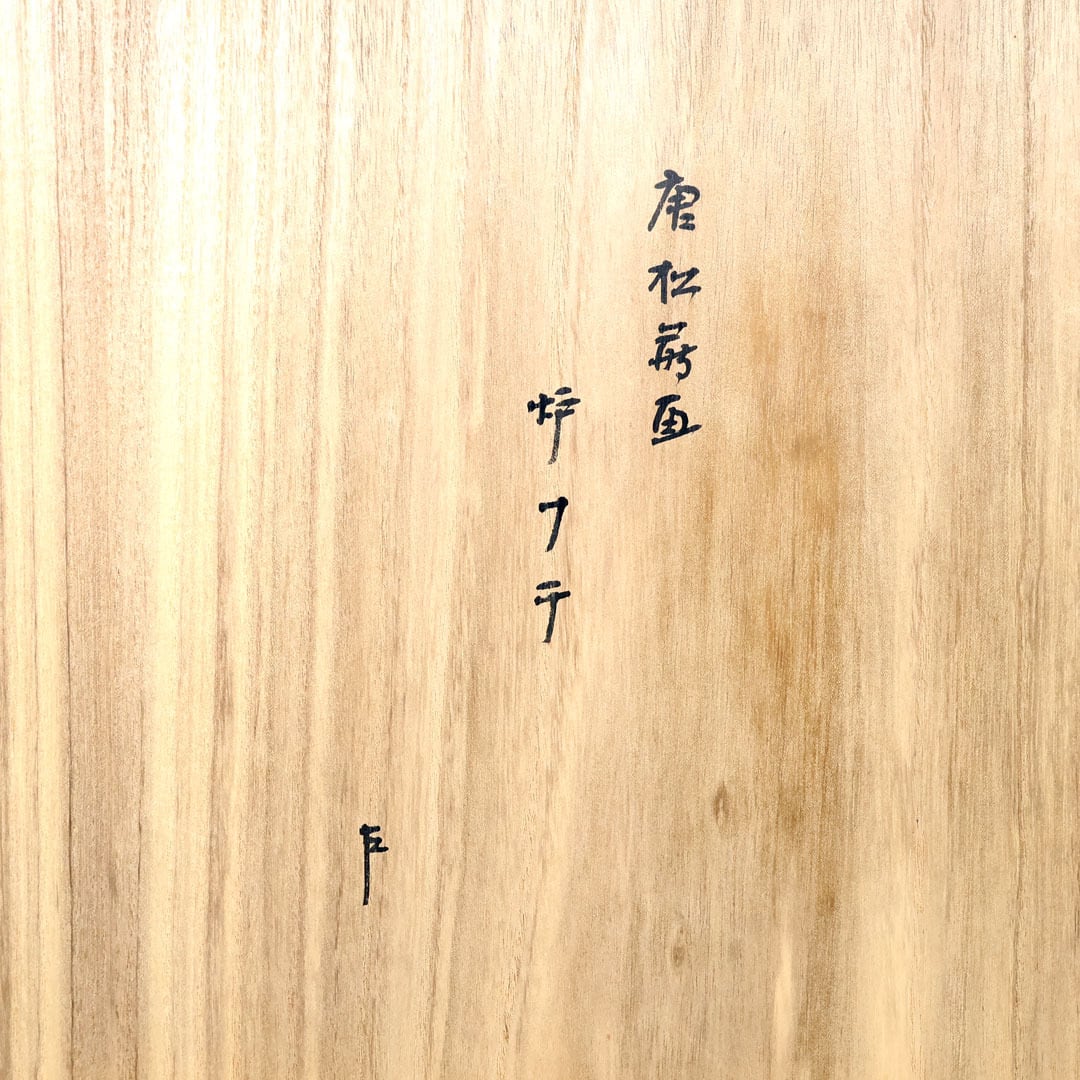 唐松蒔画
炉フチ